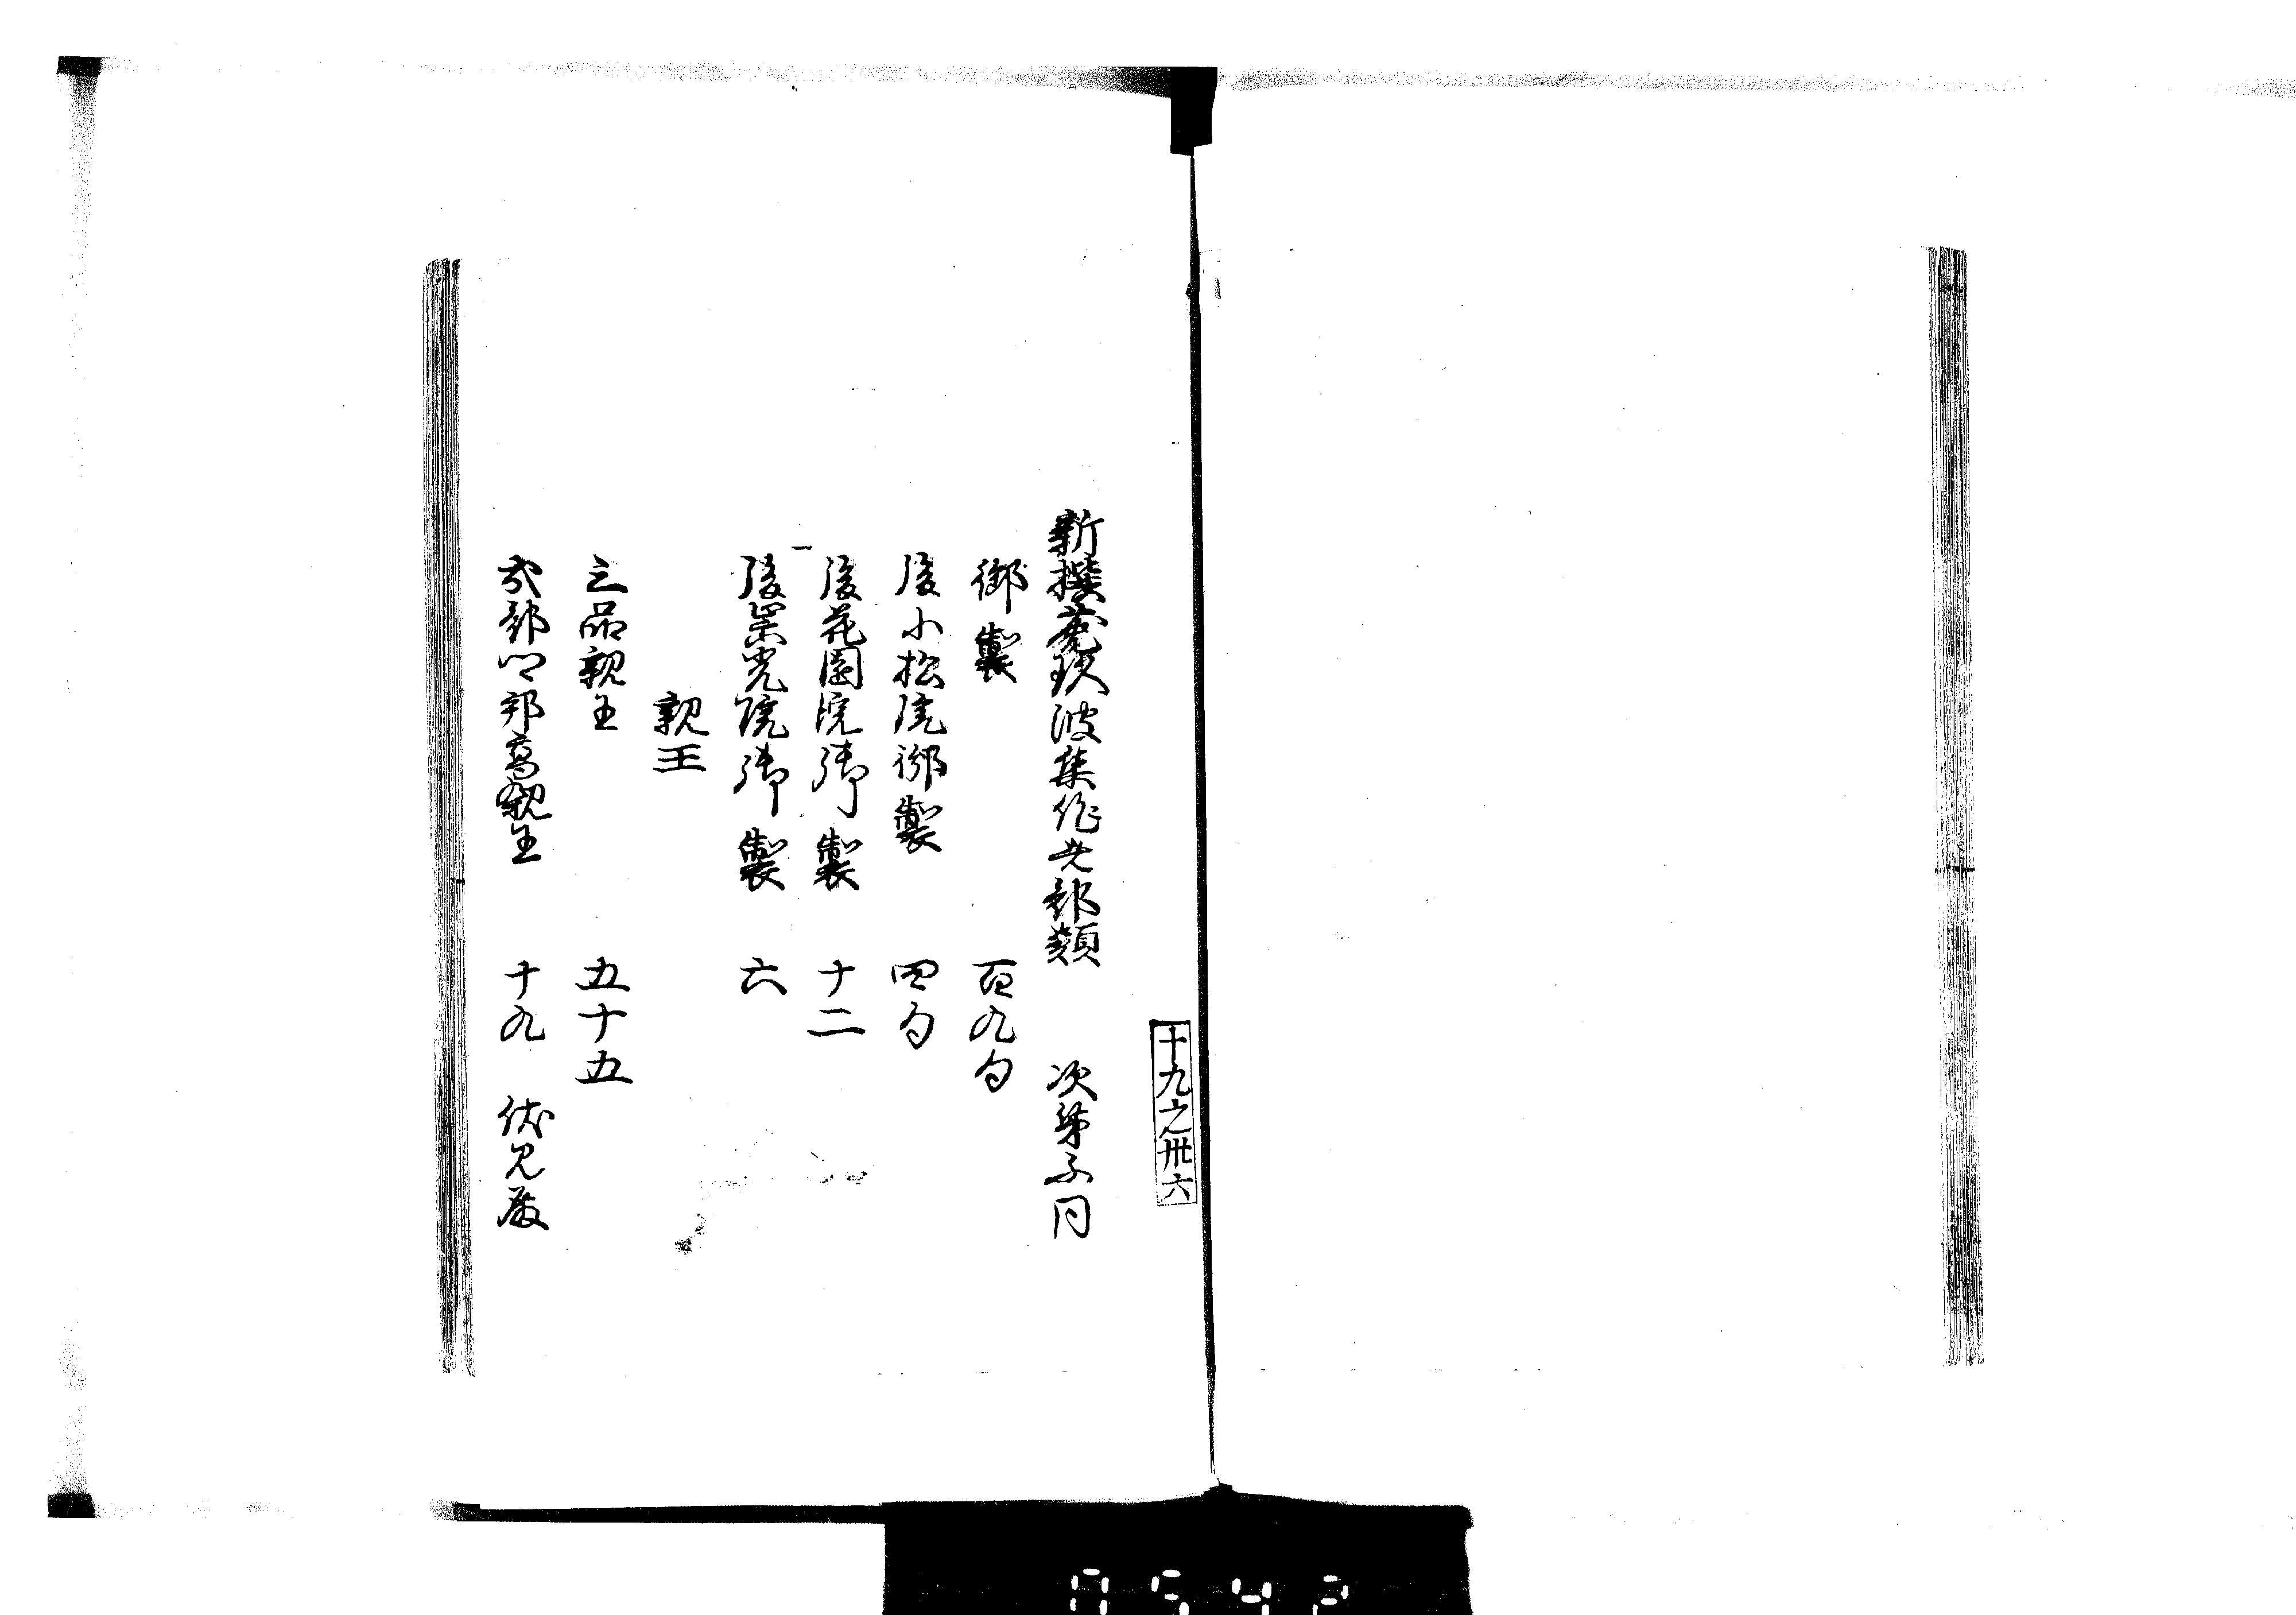 十九之卅六
新撰菟玖波集作者部類 次第不同
御製 百九句
後小松院御製 四句
後花園院御製 十二
後崇光院御製 六
親王
二品親王 五十五
式部卿邦高親王 十九 伏見殿